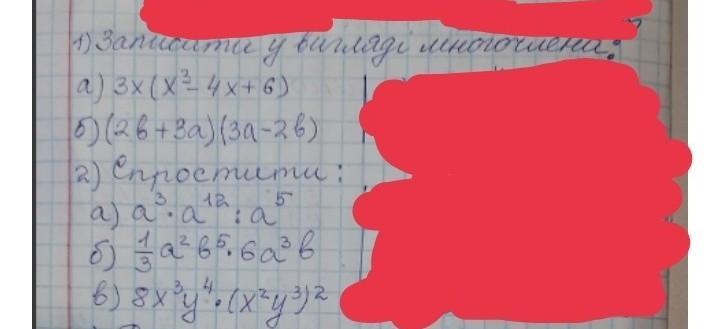 1) Записати у вигляді многочлена:
а) 3x(x³-4x+6)
б) (2b+3a)(3a-2b)
2) Спростити:
а) a³·a¹²:a⁵
б) 1/3 a²b⁵·6a³b
в) 8x³y⁴·(x²y³)²